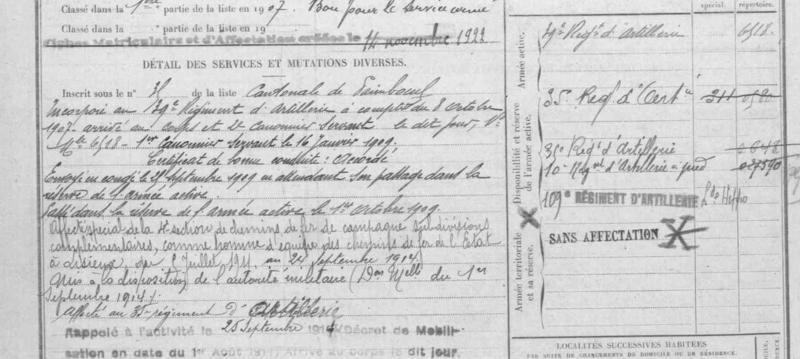 Classé dans la 1ère partie de la liste en 1907. Bon pour le service armé
Classé dans la partie de la liste en 19
Fiches Matriculaire et d'Affectation créées le 14 novembre 1922
DÉTAIL DES SERVICES ET MUTATIONS DIVERSES.
Inscrit sous le n° 35 de la liste Cantonale de
Incorporé au Régiment d'Artillerie à compter du 8 Octobre
1907. arrivé au corps et 2e Canonnier Servant le dit jour, No
Mle 6518 - 1er Canonnier Servant le 16 Janvier 1909.
Certificat de bonne conduite : Accordé
Envoyé en congé le 25 Septembre 1909 en attendant son passage dans la
réserve de l'armée active.
Passé dans la réserve de l'armée active le 1er Octobre 1909.
Affecté spécial de la section de chemins de fer de campagne subdivisions
complémentaires, comme homme d'équipe des chemins de fer de l'Etat
à Lisieux, du Juillet 1911 au 24 septembre 1914.
Mis à la disposition de l'autorité militaire (Don Melle du 1er
Septembre 1914).
affecté au 35e régiment d'Artillerie
Rappelé à l'activité le 25 Septembre 1914 (Décret de Mobili-
sation en date du 1er Août 1914. Arrivé au corps le dit jour.
spécial.
répertoire.
Armée active.
Régt d'Artillerie
6518
Disponibilité et réserve de l'armée active.
35e Regt d'
311
35e Regt d'Artillerie
10e Régt d'Artillerie à pied
109e RÉGIMENT D'ARTILLERIE Lde
SANS AFFECTATION
Armée territoriale et sa réserve.
LOCALITÉS SUCCESSIVES HABITÉES
PAR SUITE DE CHANGEMENTS DE DOMICILE OU DE RÉSIDENCE.